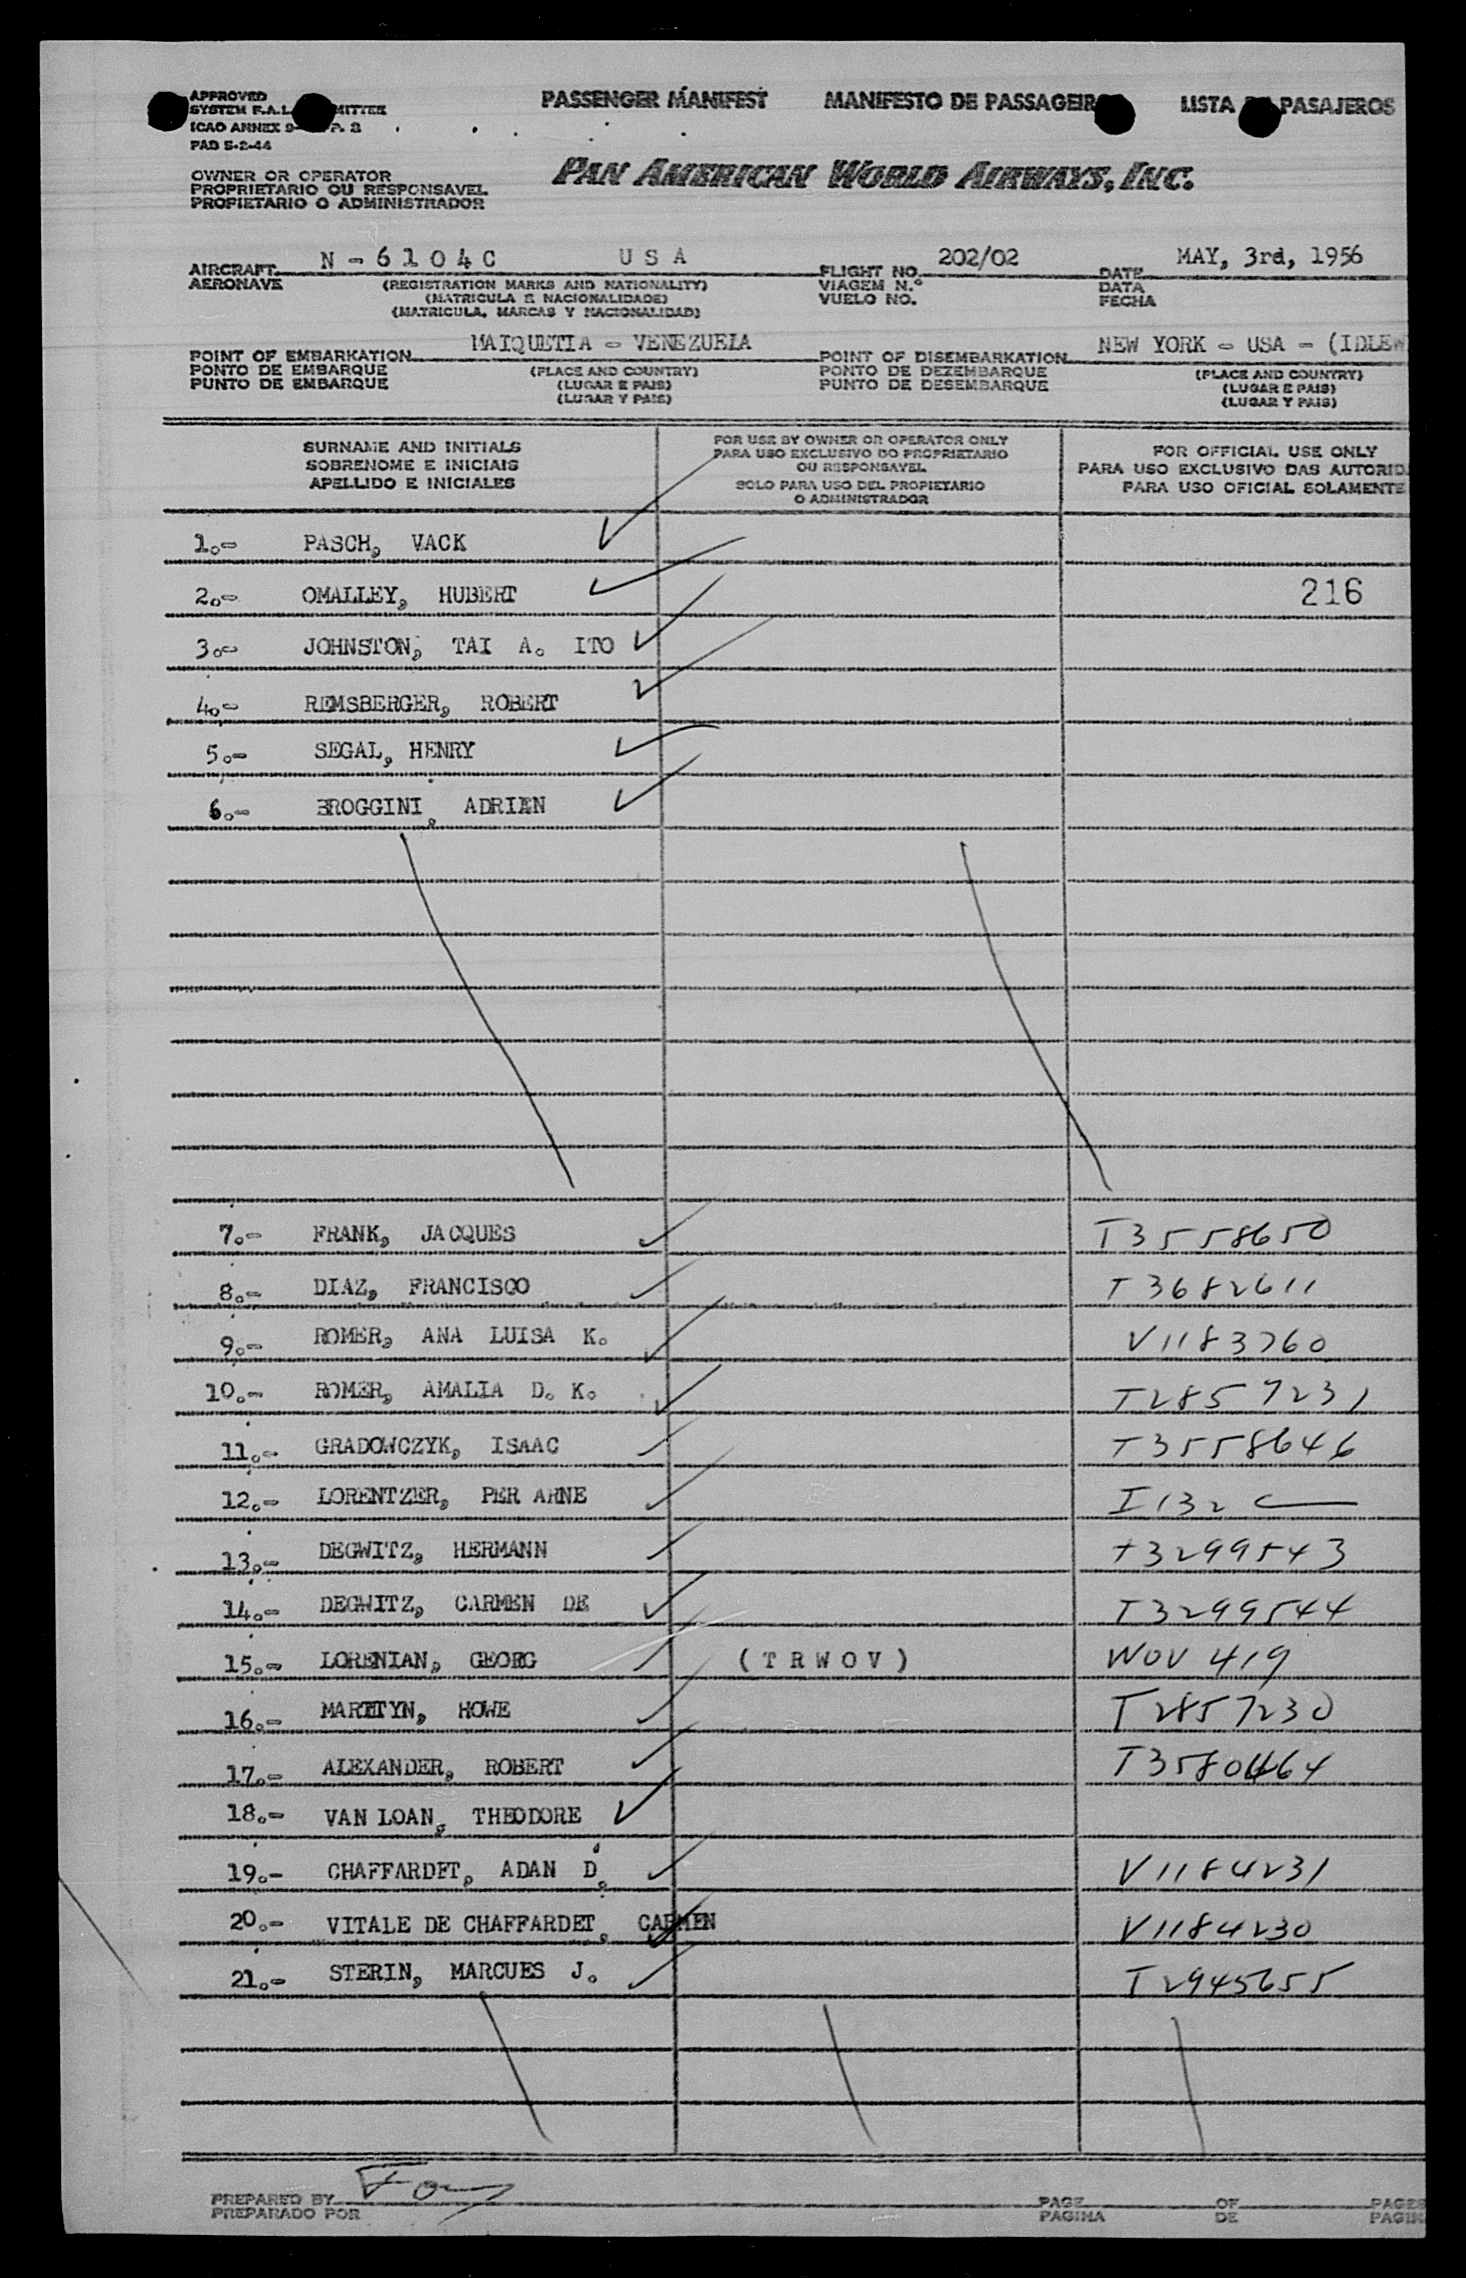 APPROVED
SYSTEM F.A.L. MITTEE
ICAO ANNEX 9
PAD 5-2-44
PASSENGER MANIFEST MANIFESTO DE PASSAGEIR LISTA PASAJEROS
OWNER OR OPERATOR
PROPRIETARIO OU RESPONSAVEL
PROPIETARIO O ADMINISTRADOR
PAN AMERICAN WORLD AIRWAYS, INC.
AIRCRAFT N - 6104C USA FLIGHT NO. 202/02 DATE MAY, 3rd, 1956
AERONAVE (REGISTRATION MARKS AND NATIONALITY) VIAGEM N.º DATA
(MATRICULA E NACIONALIDADE) VUELO NO. FECHA
(MATRICULA, MARCAS Y NACIONALIDAD)
POINT OF EMBARKATION MAIQUETIA - VENEZUELA POINT OF DISEMBARKATION NEW YORK - USA - (IDLEW
PONTO DE EMBARQUE (PLACE AND COUNTRY) PONTO DE DEZEMBARQUE (PLACE AND COUNTRY)
PUNTO DE EMBARQUE (LUGAR E PAIS) PUNTO DE DESEMBARQUE (LUGAR E PAIS)
(LUGAR Y PAIS) (LUGAR Y PAIS)
SURNAME AND INITIALS
SOBRENOME E INICIAIS
APELLIDO E INICIALES
FOR USE BY OWNER OR OPERATOR ONLY
PARA USO EXCLUSIVO DO PROPRIETARIO
OU RESPONSAVEL
SOLO PARA USO DEL PROPIETARIO
O ADMINISTRADOR
FOR OFFICIAL USE ONLY
PARA USO EXCLUSIVO DAS AUTORID
PARA USO OFICIAL SOLAMENTE
1.- PASCH, VACK
2.- OMALLEY, HUBERT 216
3.- JOHNSTON, TAI A. ITO
4.- REMSBERGER, ROBERT
5.- SEGAL, HENRY
6.- BROGGINI, ADRIEN
7.- FRANK, JACQUES T3558650
8.- DIAZ, FRANCISCO T3682611
9.- ROMER, ANA LUISA K. V1183760
10.- ROMER, AMALIA D. K. T2857231
11.- GRADOWCZYK, ISAAC T3558646
12.- LORENTZER, PER ARNE I132 C
13.- DEGWITZ, HERMANN T3299543
14.- DEGWITZ, CARMEN DE T3299544
15.- LORENIAN, GEORG (TRWOV) WOV 419
16.- HOWE T2857230
17.- ALEXANDER, ROBERT
18.- VAN LOAN, THEODORE
19.- CHAFFARDET, ADAN D. V1184231
20.- VITALE DE CHAFFARDET, CARMEN V1184230
21.- STERIN, MARCUES J. T2945655
PREPARED BY PAGE OF PAGES
PREPARADO POR PAGINA DE PAGIN